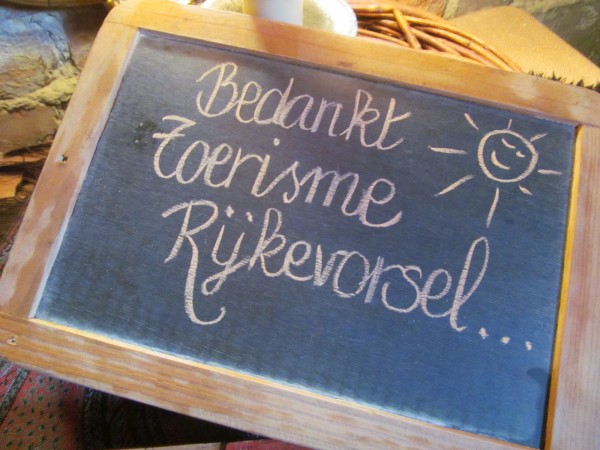 Bedankt
Toerisme
Rijkevorsel...